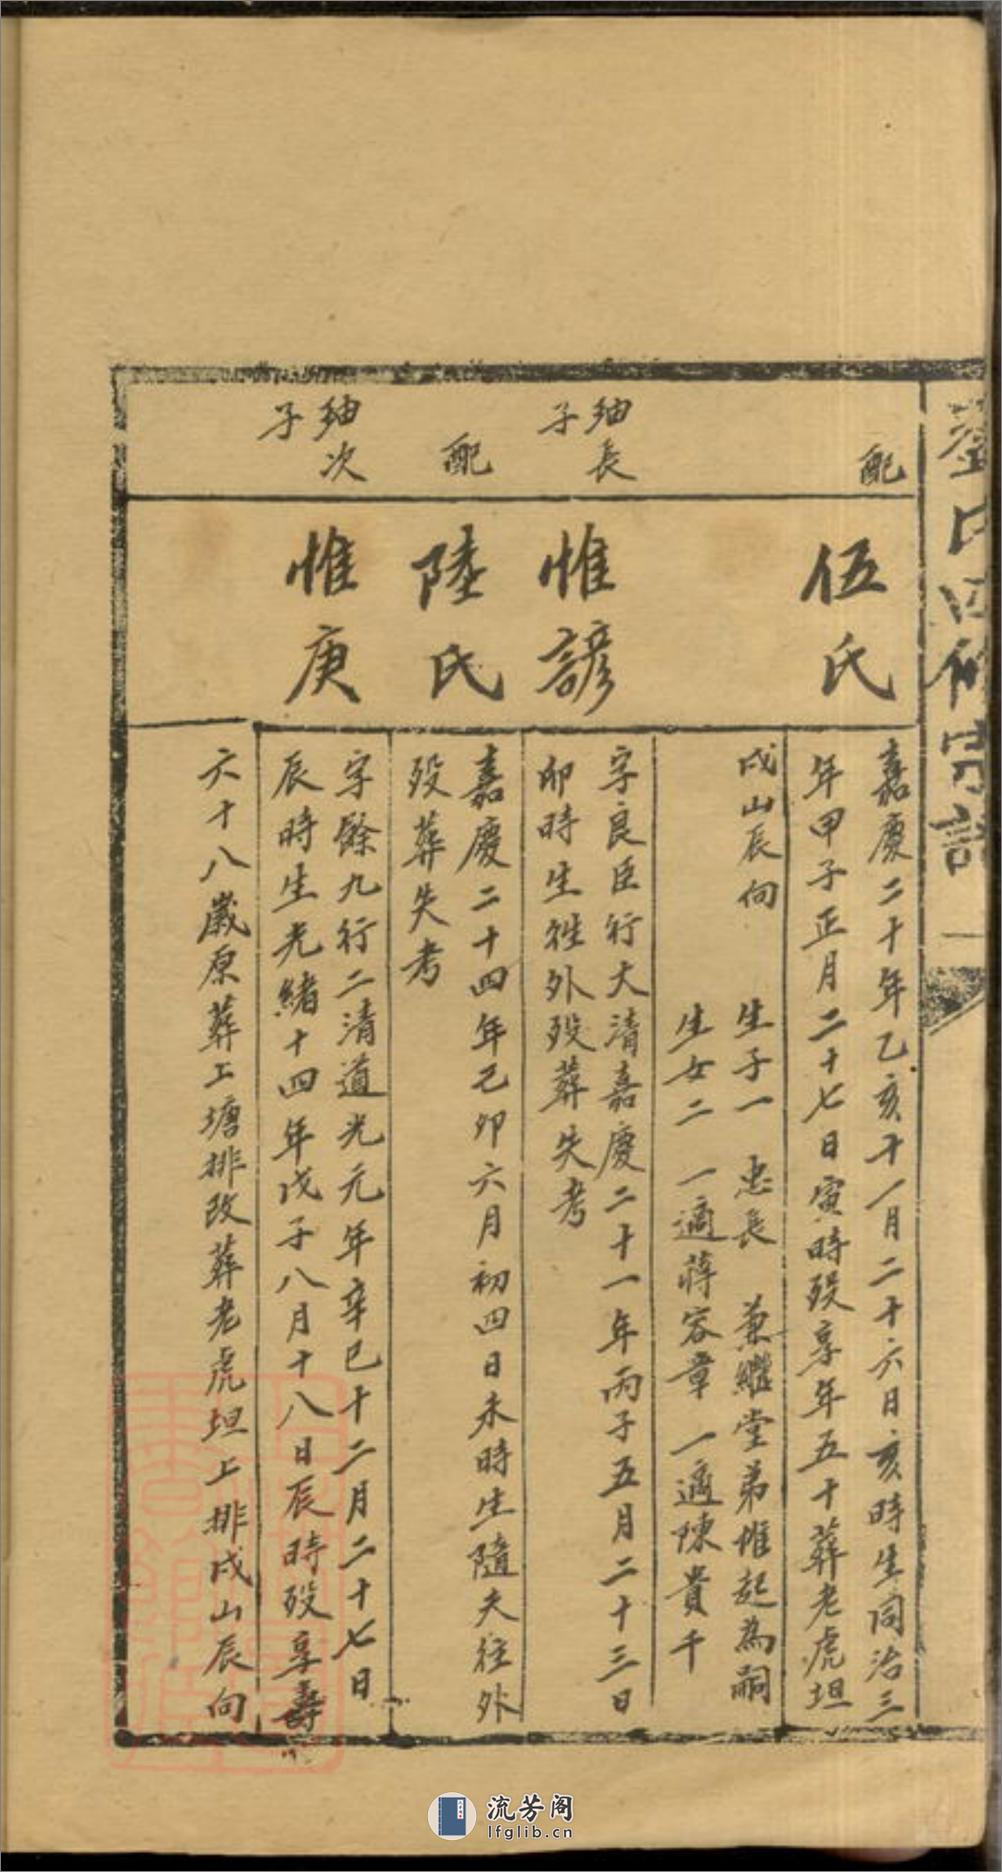 氏四修
配
伍氏
嘉慶二十年乙亥十一月二十六日亥時生同治三
年甲子正月二十七日寅時歿享年五十葬老虎坦
戌山辰向 生子一 忠長 兼繼堂弟惟起為嗣
生女二 一適蔣容章 一適陳貴千
紬長
子
惟諺
字良臣行大清嘉慶二十一年丙子五月二十三日
卯時生徃外歿葬失考
配
陸氏
嘉慶二十四年己卯六月初四日未時生隨夫徃外
歿葬失考
紬次
子
惟庚
字餘九行二清道光元年辛巳十二月二十七日
辰時生光緒十四年戊子八月十八日辰時歿享壽
六十八歲原葬上塘排改葬老虎坦上排戌山辰向
流芳阁
lfglib.cn